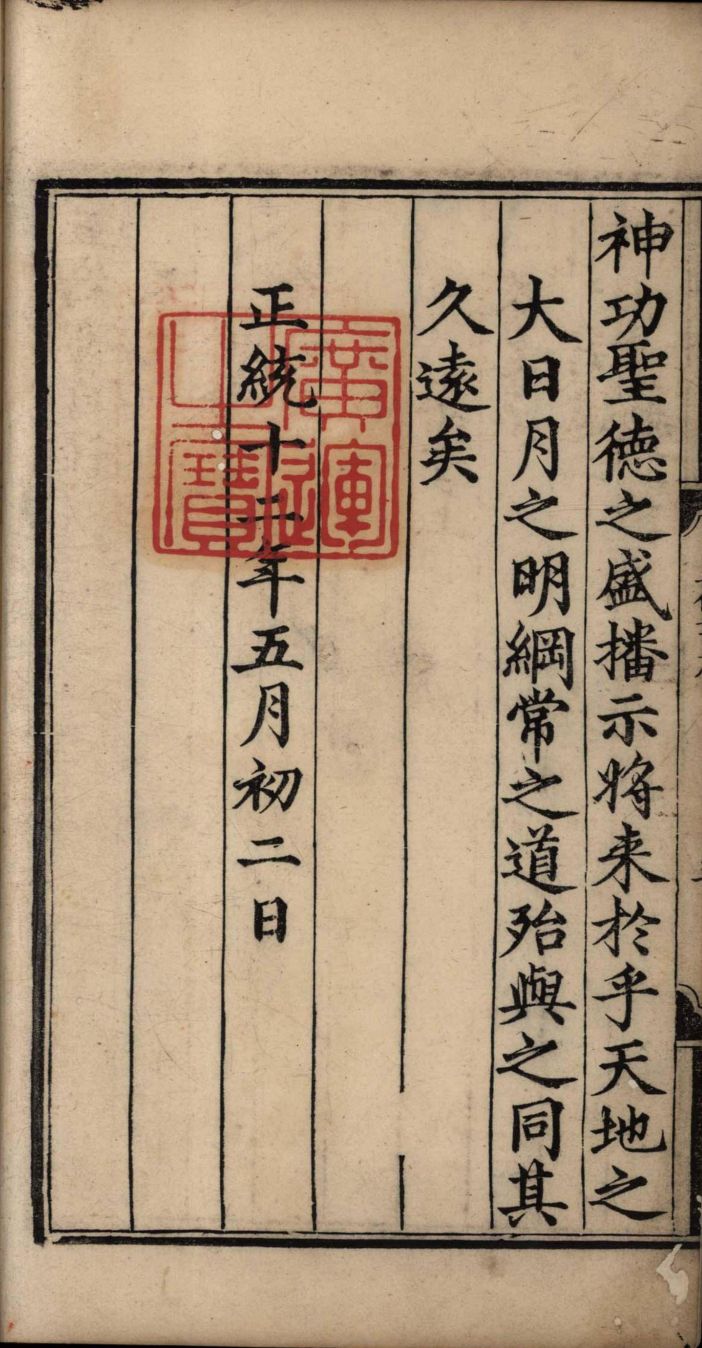 神功聖徳之盛播示将来於乎天地之
大日月之明綱常之道殆與之同其
久遠矣
正統十二年五月初二日
廣運之寶